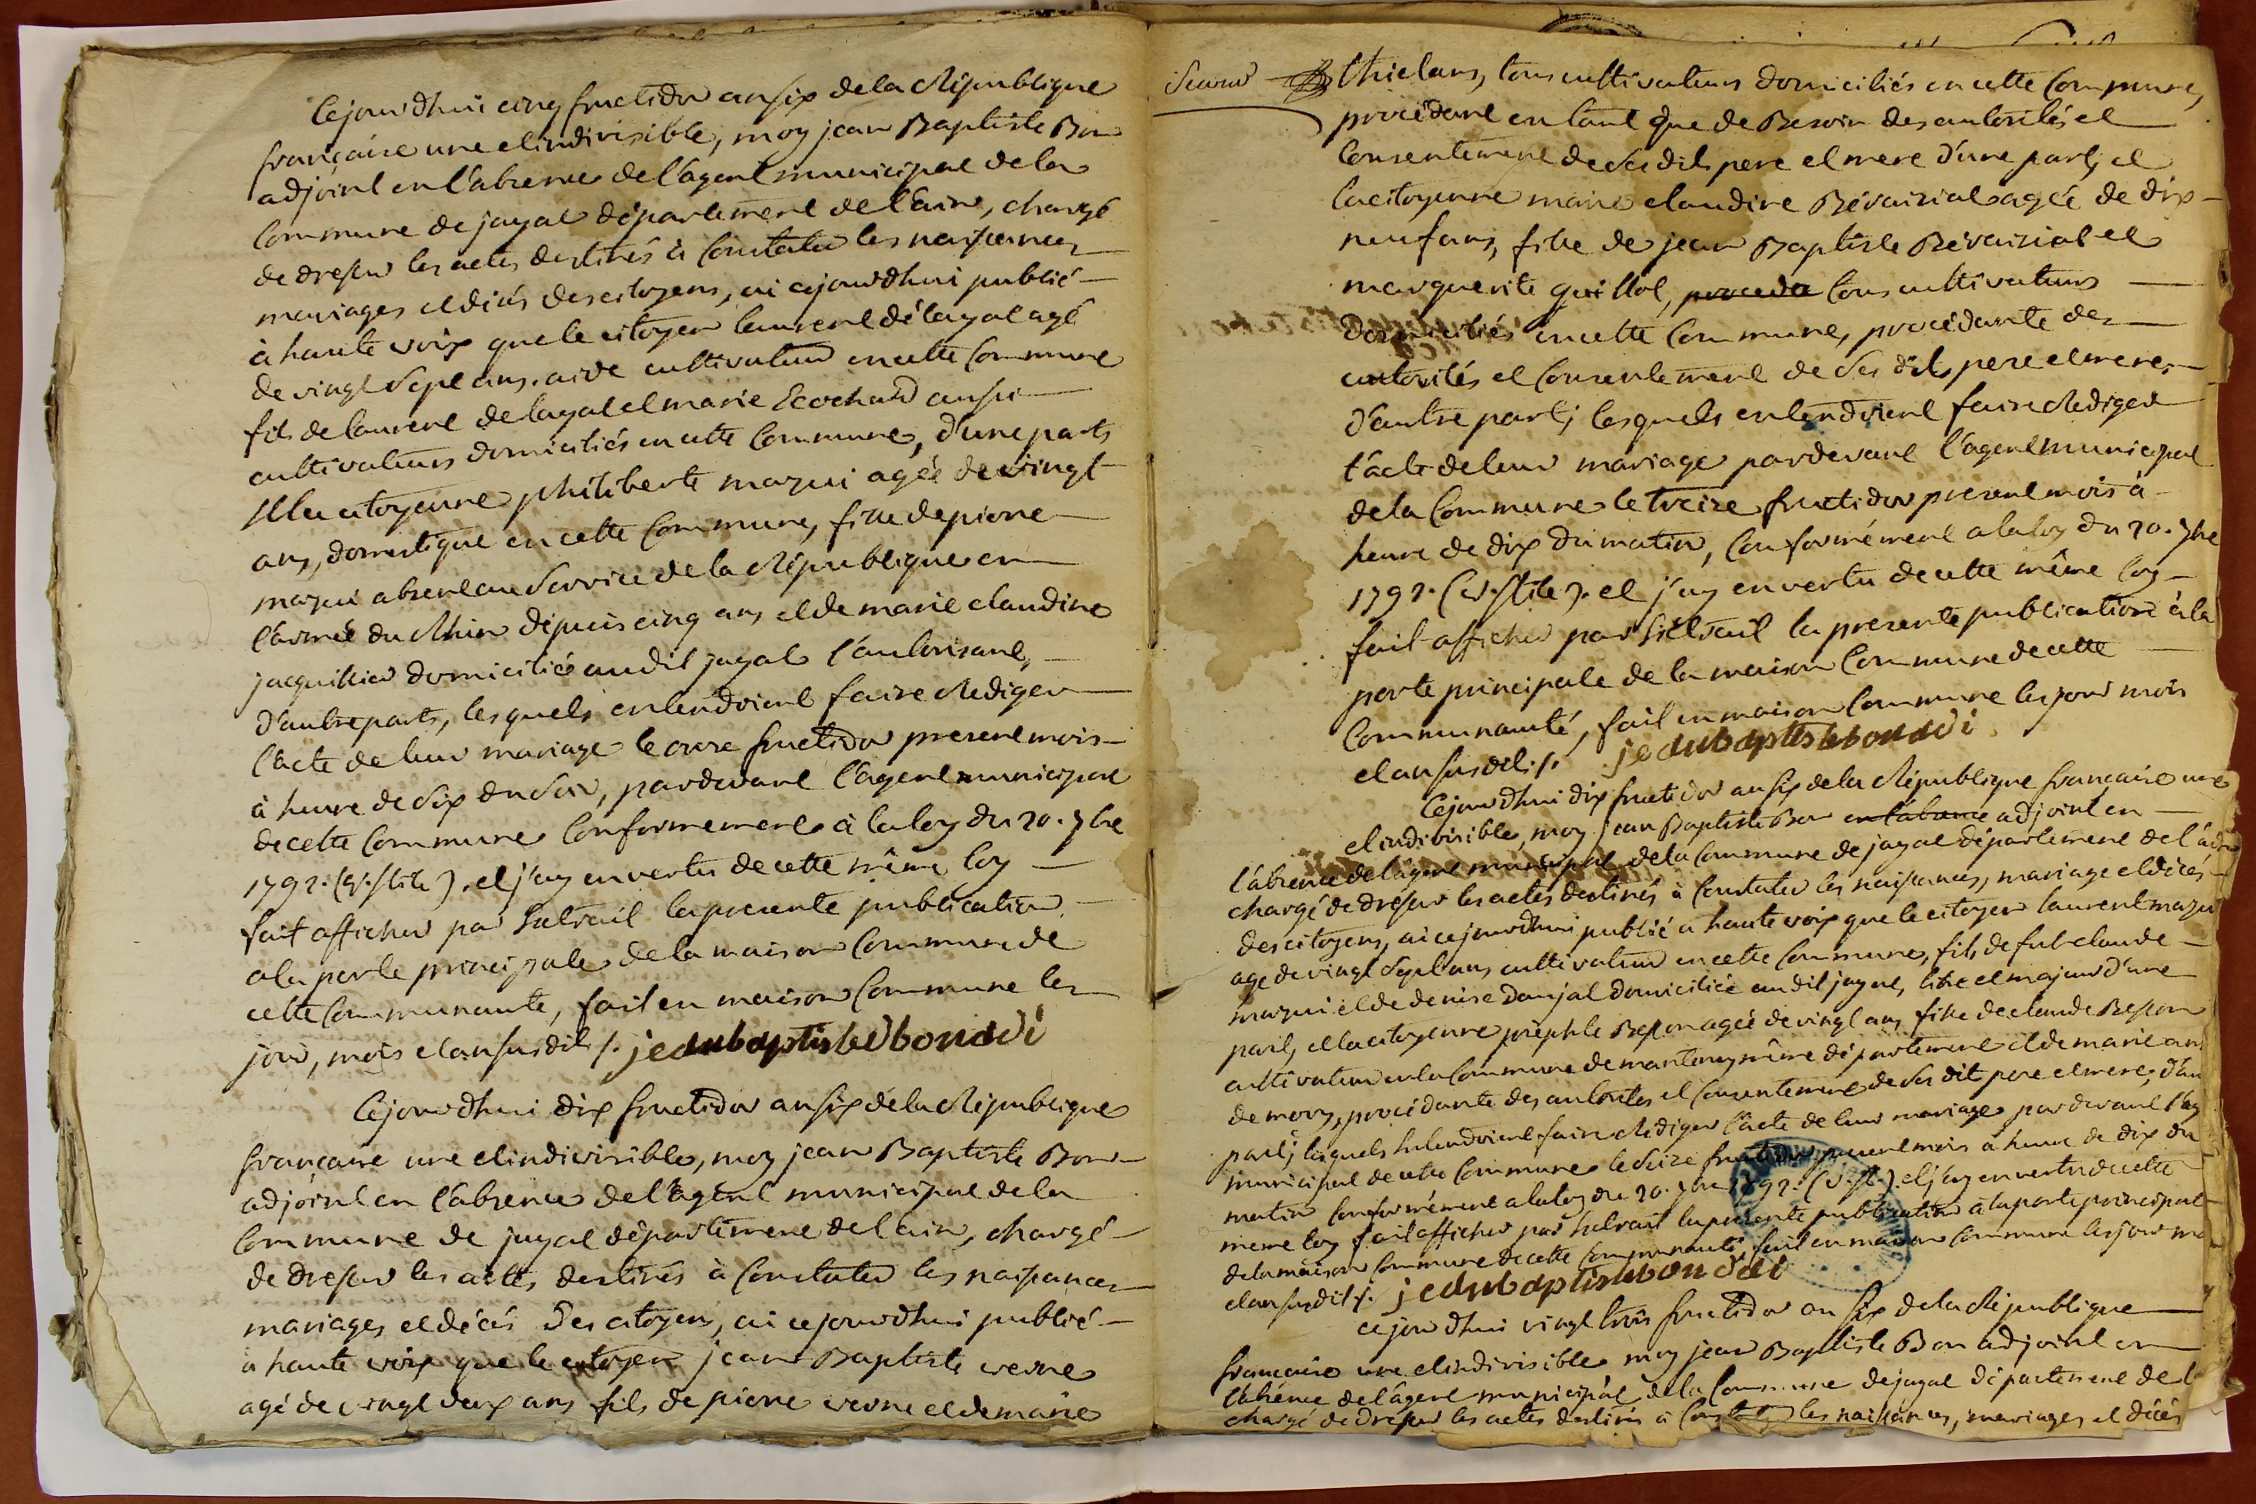 Cejourdhui cinq fructidor an six de la République
française une et indivisible, moy jean Baptiste Bon
adjoint en l'absence de l'agent municipal de la
Commune de jayat département de l'ain, chargé
de dresser les actes destinés à Constater les naissances
mariages et décés des citoyens, ai cejourdhui publié
à haute voix que le citoyen laurent délayat agé
de vingt sept ans, aide cultivateur en cette Commune
fils de laurent delayat et marie Ecochard aussi
cultivateurs domiciliés en cette Commune, d'une part
Et la citoyenne philiberte mazui agée de vingt
ans, domestique en cette Commune, fille de pierre
mazui absent au Service de la République en
l'armée du Rhin dépuis cinq ans et de marie claudine
jacquillier domiciliée audit jayat l'autorisant,
d'autre part, lesquels entendoient faire Rediger
l'acte de leur mariage le onze fructidor present mois
à heure de Six du Soir, pardevant l'agent municipal
de cette Commune Conformement à la loy du 20. 7bre
1792. (v. stile). et j'ay en vertu de cette même loy
fait afficher par Extrait la presente publication
a la porte principale de la maison Commune de
cette Communauté, fait en maison Commune les
jour, mois et an susdit /. jeanbaptistebonadoi
Cejourdhui dix fructidor an six de la République
française une et indivisible, moy jean Baptiste Bon
adjoint en l'absence de l'agent municipal de la
Commune de jayat département de l'ain, chargé
de dresser les actes destinés à Constater les naissances
mariages et décés des citoyens, ai cejourdhui publié
à haute voix que le citoyen jean Baptiste verne
agé de vingt deux ans fils de pierre verne et de marie
thielans, tous cultivateurs domiciliés en cette Commune,
procédant en tant que de Besoin des autorités et
Consentement de Ses dits pere et mere d'une part, et
la citoyenne marie claudine Bévaisiat agée de dix
neuf ans, fille de jean Baptiste Bévaisiat et
marguerite guillot, proceda tous cultivateurs
domiciliés en cette Commune, procédante des
autorités et Consentement de Ses dits pere et mere,
d'autre part; lesquels entendoient faire Rediger
l'acte de leur mariage pardevant l'agent municipal
de la Commune le treize fructidor present mois à
heure de dix du matin, Conformément a la loy du 20. 7bre
1792. (v. stile). et j'ay en vertu de cette même loy
fait afficher par Extrait la presente publication à la
porte principale de la maison Commune de cette
Communauté, fait en maison Commune les jour mois
et an susdit /. jeanbaptistebonadoi
Cejourdhui dix fructidor an six de la République française une
et indivisible, moy jean Baptiste Bon en l'absence adjoint en
l'absence de l'agent municipal de la Commune de jayat département de l'ain
chargé de dresser les actes destinés à Constater les naissances, mariage et décés
des citoyens, ai cejourdhui publié a haute voix que le citoyen laurent mazui
age de vingt Sept ans cultivateur en cette Commune, fils de fut claude
mazui et de denise danjat domiciliée audit jayat, libre et majeur d'une
part, et la citoyenne josephte Besson agée de vingt ans fille de claude Besson
cultivateur en la Commune de mantenay même département et de marie an
de mory, procédante des autorités et Consentement de Ses dit pere et mere, d'au
part; lesquels Entendoient faire Rediger l'acte de leur mariage pardevant l'ag
municipal de cette Commune le Seize fructidor present mois à heure de dix du
matin Conformément a la loy du 20. 7bre 1792. (v. st.). et j'ay en vertu de cette
meme loy fait afficher par Extrait la presente publication à la porte principale
de la maison Commune de cette Communauté, fait en maison Commune les jour mo
et an susdit /. jeanbaptistebonadoi
cejourdhui vingt trois fructidor an six de la République
française une et indivisible moy jean Baptiste Bon adjoint en
l'absence de l'agent municipal de la Commune de jayat département de l
chargé de dresser les actes destinés à Constater les naissances, mariages et décés